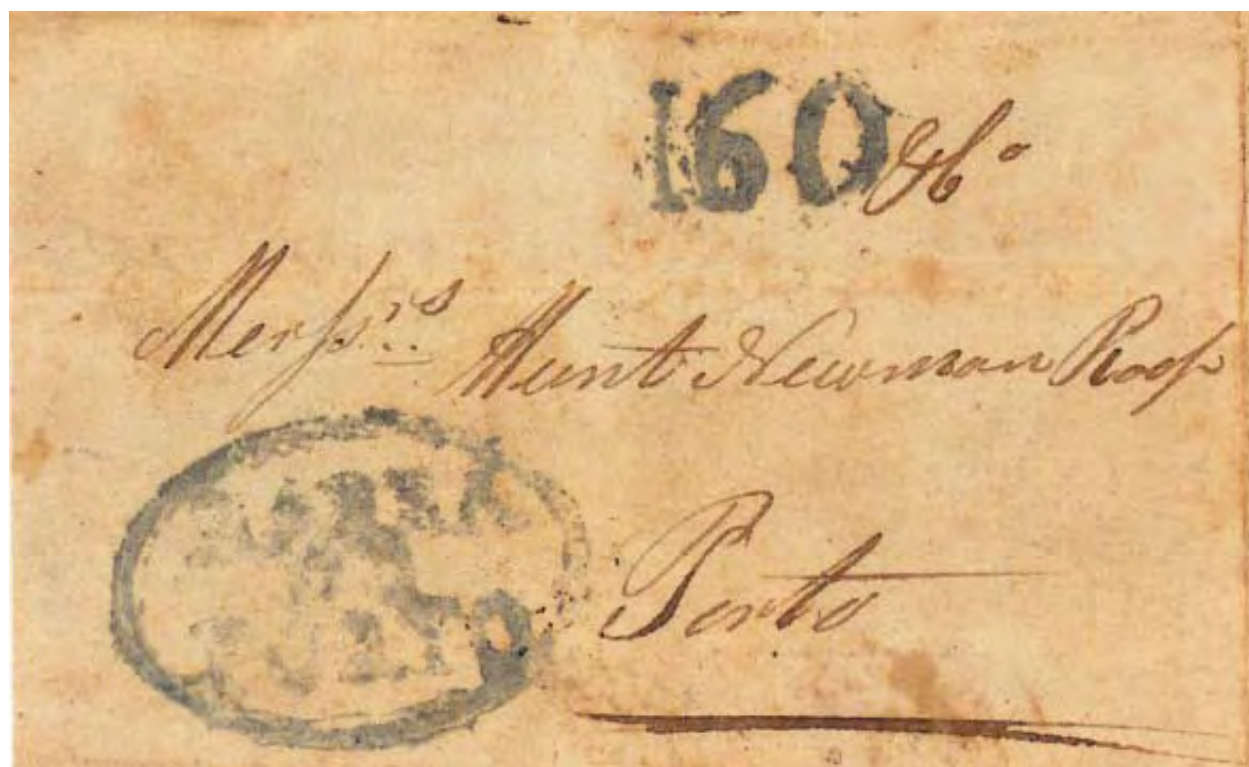 160 & Co
Messrs Hunt Newman Roop
Porto
PORTO